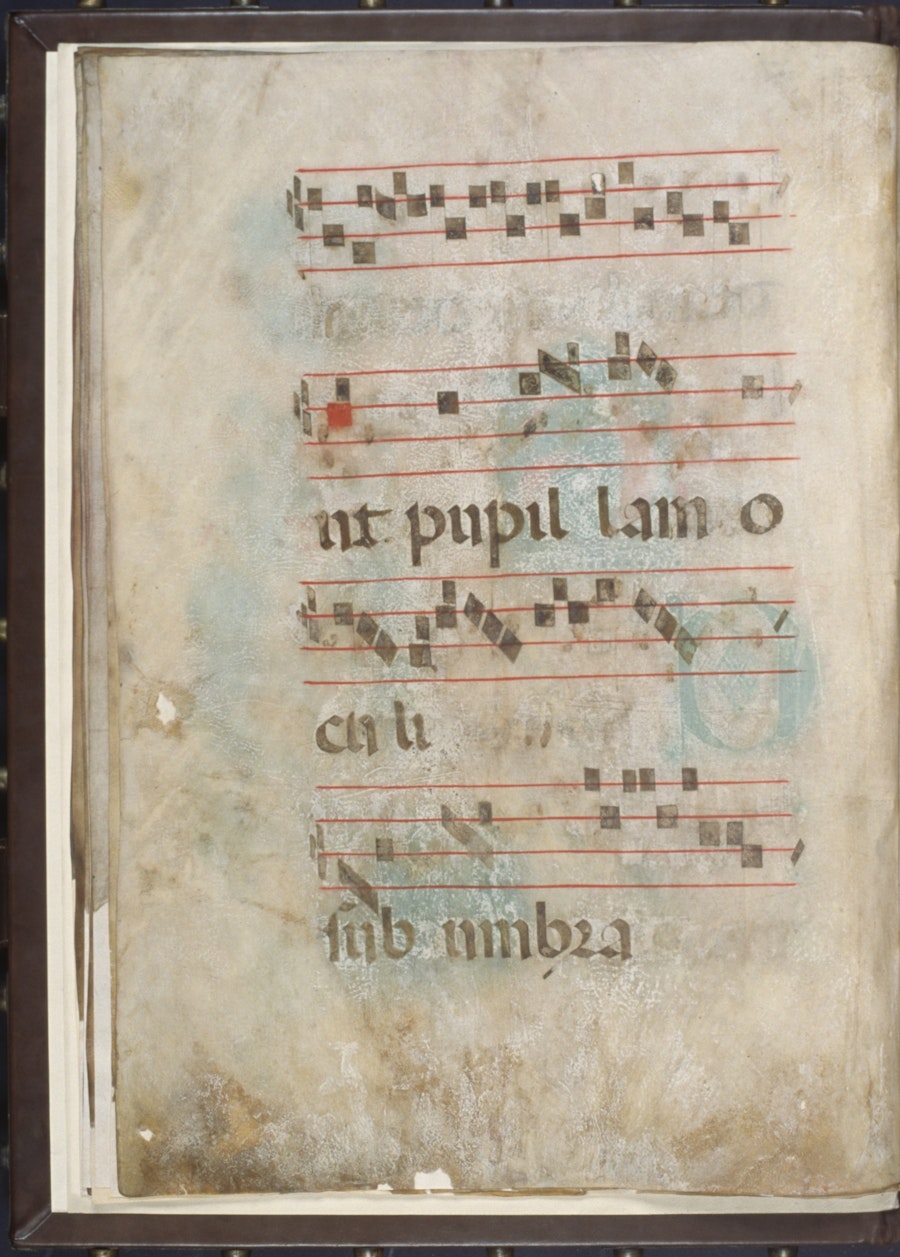 ut pupil lam o
culi
sub umbra